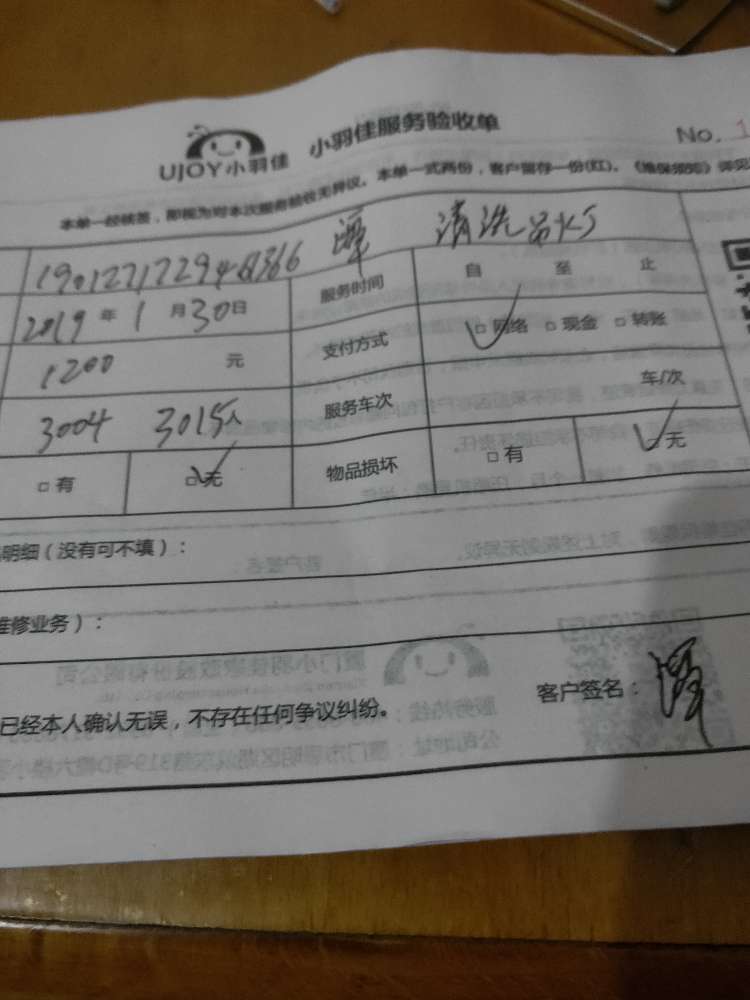 UJOY小羽佳 小羽佳服务验收单 No. 1
本单一经核签，即视为对本次服务验收无异议。本单一式两份，客户留存一份(红)。《维保须知》详见
谭 清洗
2019年1月30日 服务时间 自 至 止
1200 元 支付方式 □网络 □现金 □转账
3004 3015人 服务车次 车/次
□有 □无 物品损坏 □有 □无
明细（没有可不填）：
维修业务）：
已经本人确认无误，不存在任何争议纠纷。 客户签名：谭